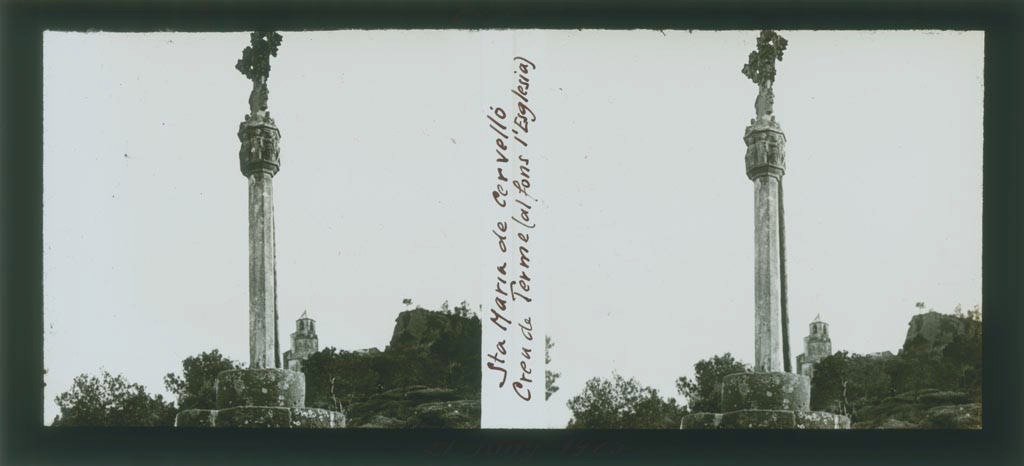 Sta Maria de Cervelló
Creu de Terme (al fons l'Esglesia)